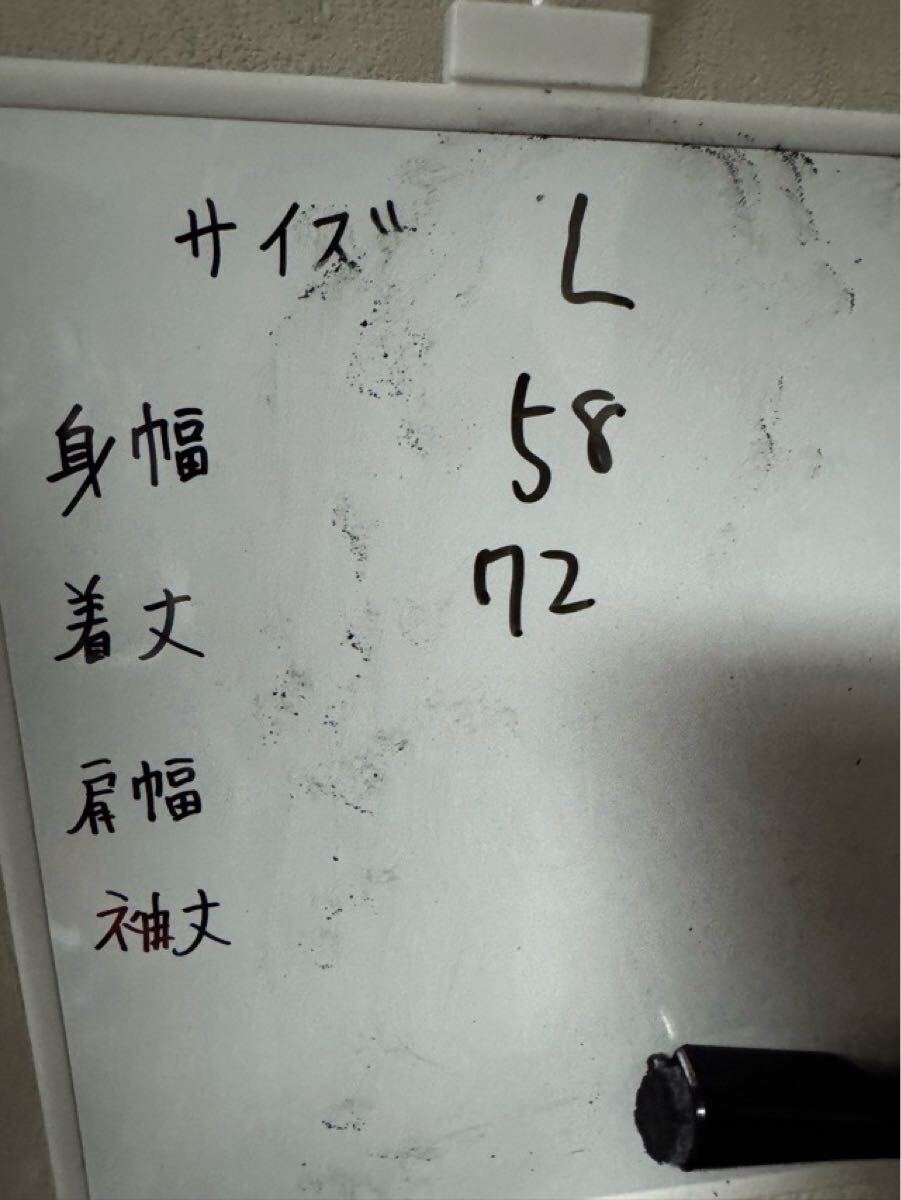 サイズ L
身幅 58
着丈 72
肩幅
袖丈